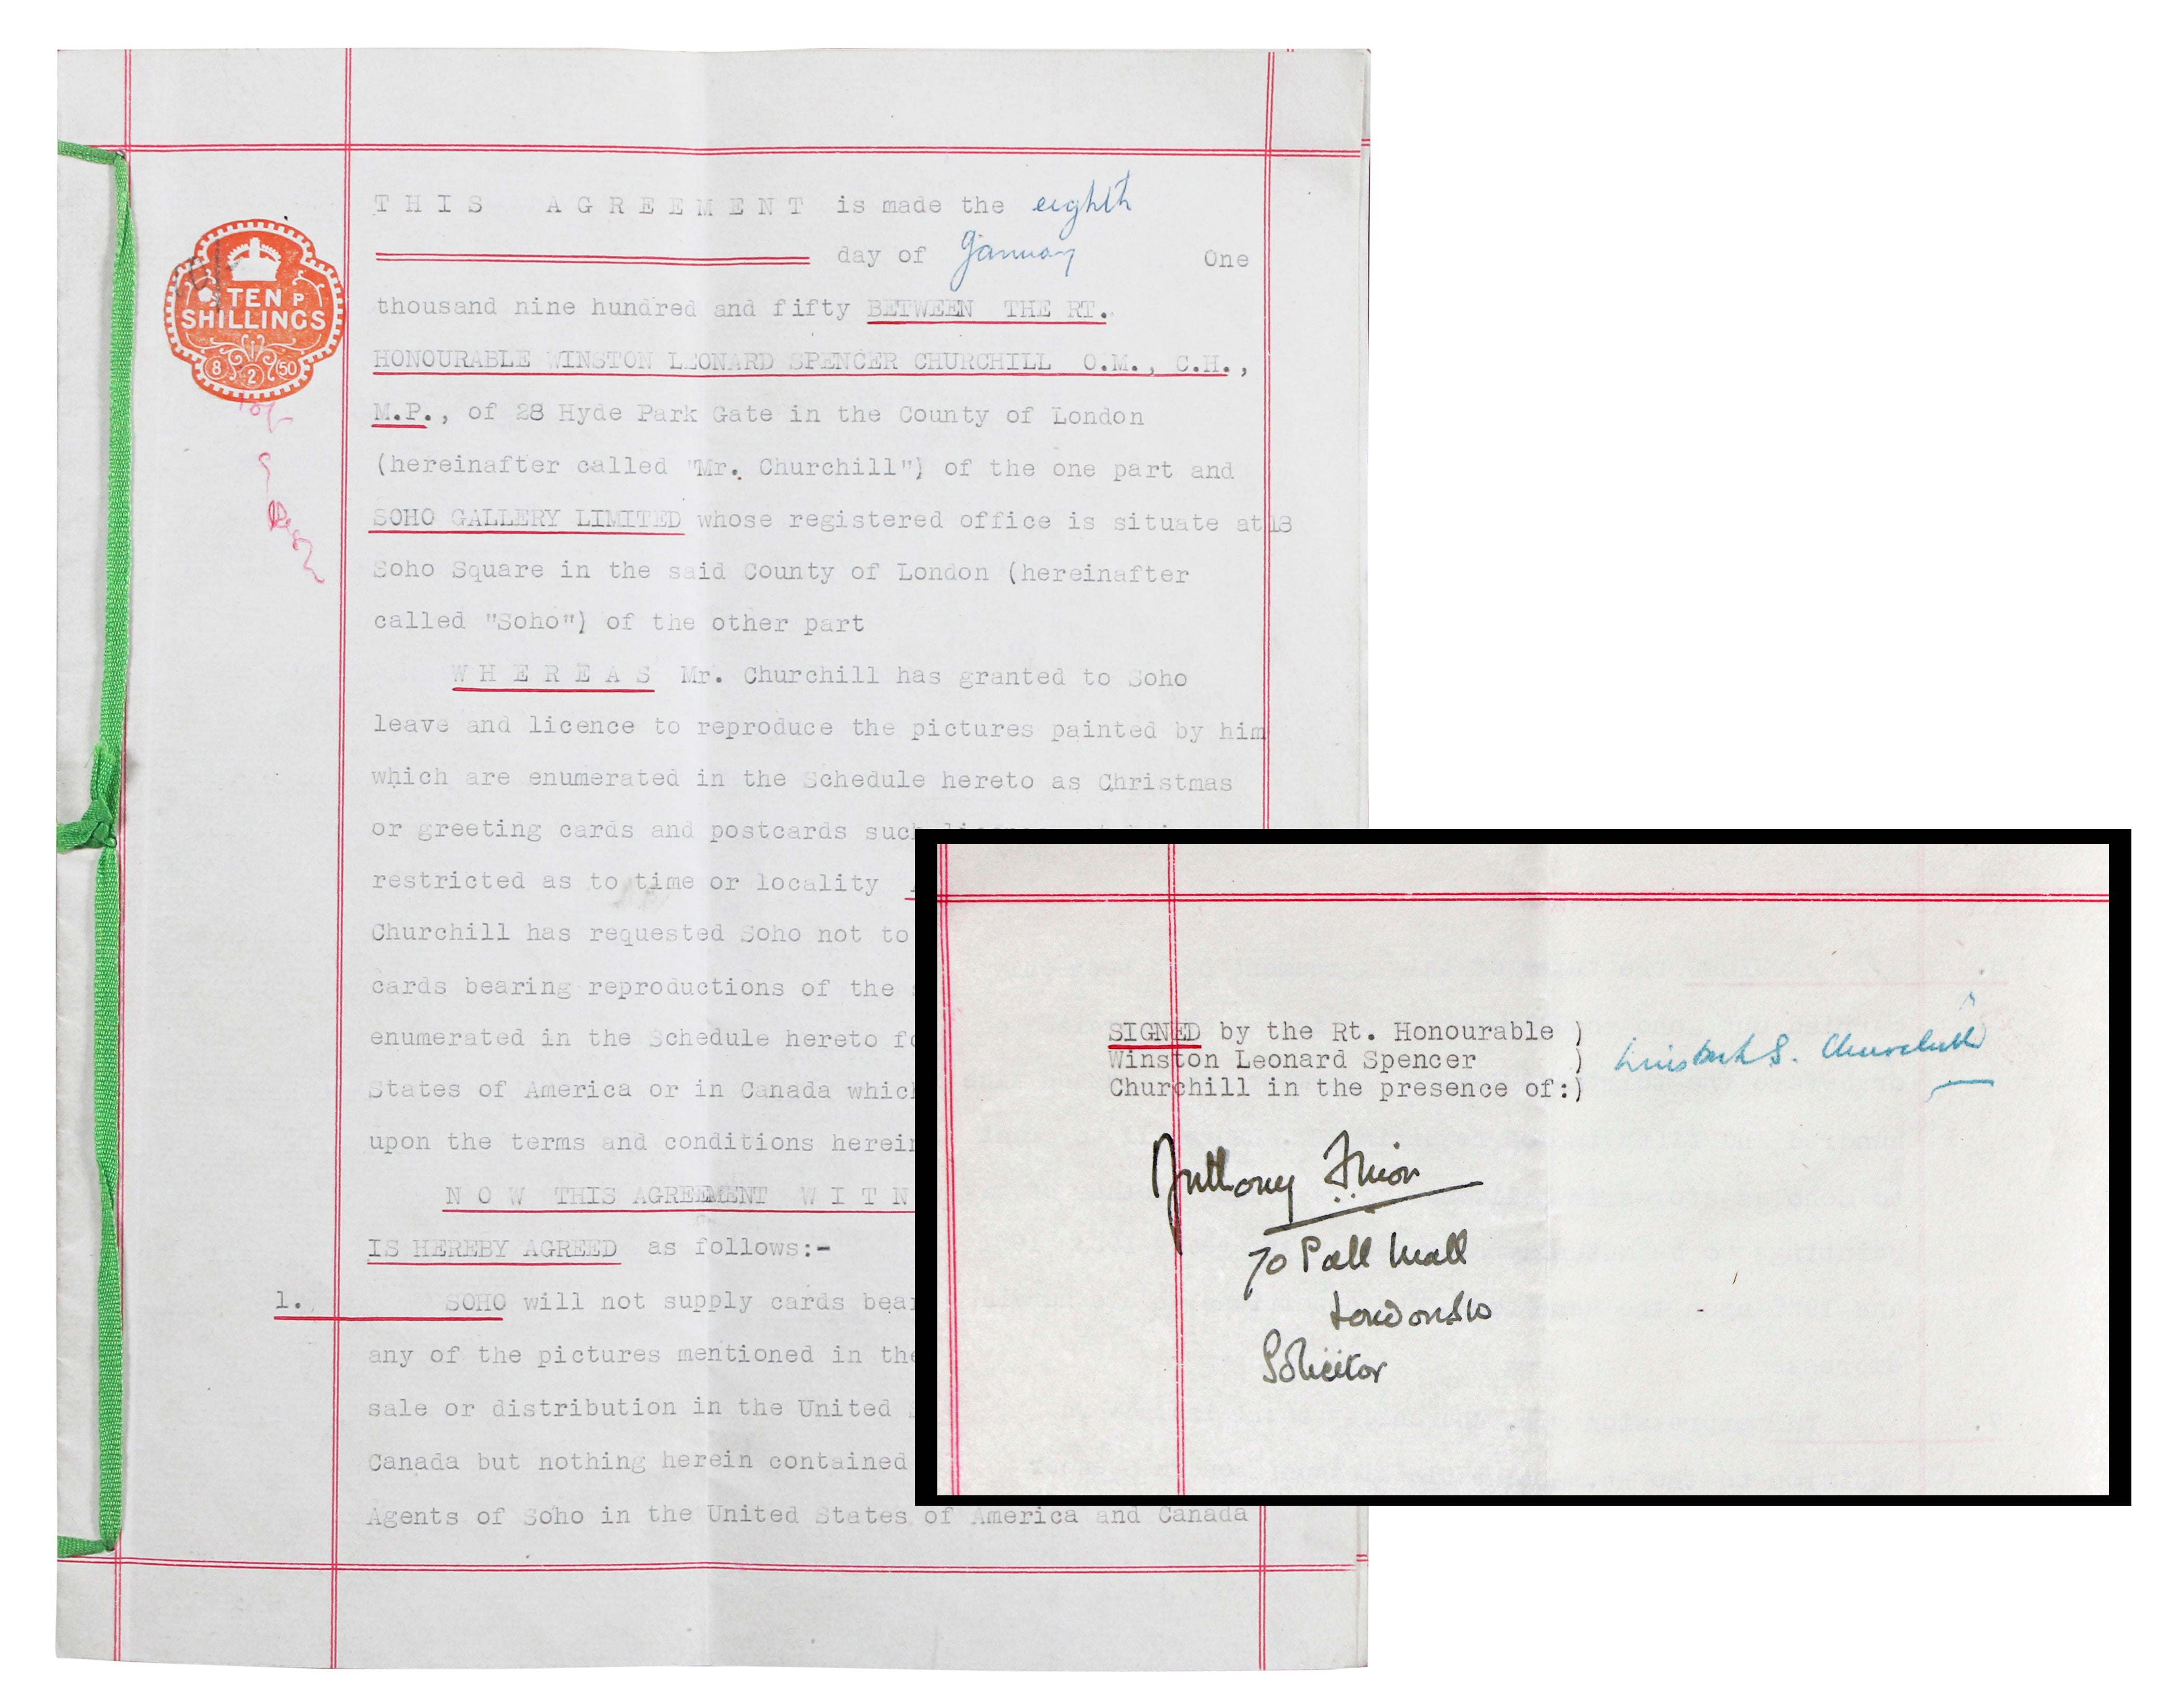 THIS AGREEMENT is made the eighth
day of January One
thousand nine hundred and fifty BETWEEN THE RT.
HONOURABLE WINSTON LEONARD SPENCER CHURCHILL O.M., C.H.,
M.P., of 28 Hyde Park Gate in the County of London
(hereinafter called "Mr. Churchill") of the one part and
SOHO GALLERY LIMITED whose registered office is situate at 18
Soho Square in the said County of London (hereinafter
called "Soho") of the other part
WHEREAS Mr. Churchill has granted to Soho
leave and licence to reproduce the pictures painted by him
which are enumerated in the Schedule hereto as Christmas
or greeting cards and postcards such
restricted as to time or locality
Churchill has requested Soho not to
cards bearing reproductions of the
enumerated in the Schedule hereto
States of America or in Canada
upon the terms and conditions
NOW THIS AGREEMENT
IS HEREBY AGREED as follows:-
1. SOHO will not supply cards
any of the pictures mentioned in the
sale or distribution in the United
Canada but nothing herein contained
Agents of Soho in the United States of America and Canada
TEN P
SHILLINGS
8 2 50
SIGNED by the Rt. Honourable )
Winston Leonard Spencer )
Churchill in the presence of:)
Winston S. Churchill
Anthony
70 Pall Mall
London SW
Solicitor